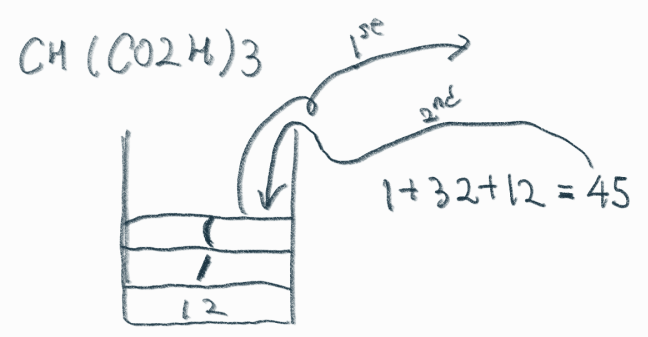 CH(CO2H)3
1st
2nd
1+32+12=45
(
/
12